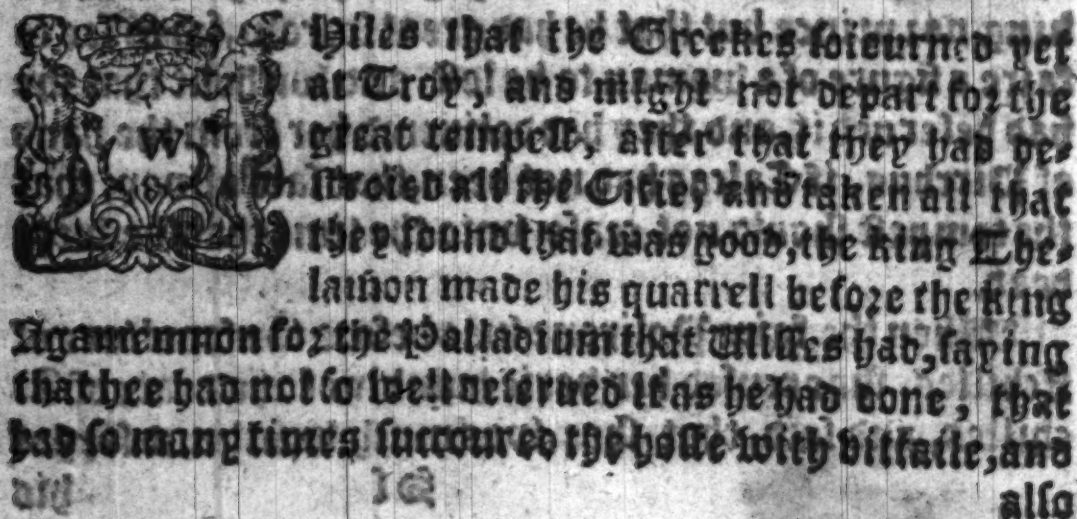 WHiles that the Greekes soiourned yet
at Troy, and might not depart for the
great tempest, after that they had de-
stroied all the Citie, and taken all that
they found that was good, the king The-
lamon made his quarrell before the king
Agamemnon for the Palladium that Ulisses had, saying
that hee had not so well deserued it as he had done, that
had so many times succoured the hoste with vittaile, and
also